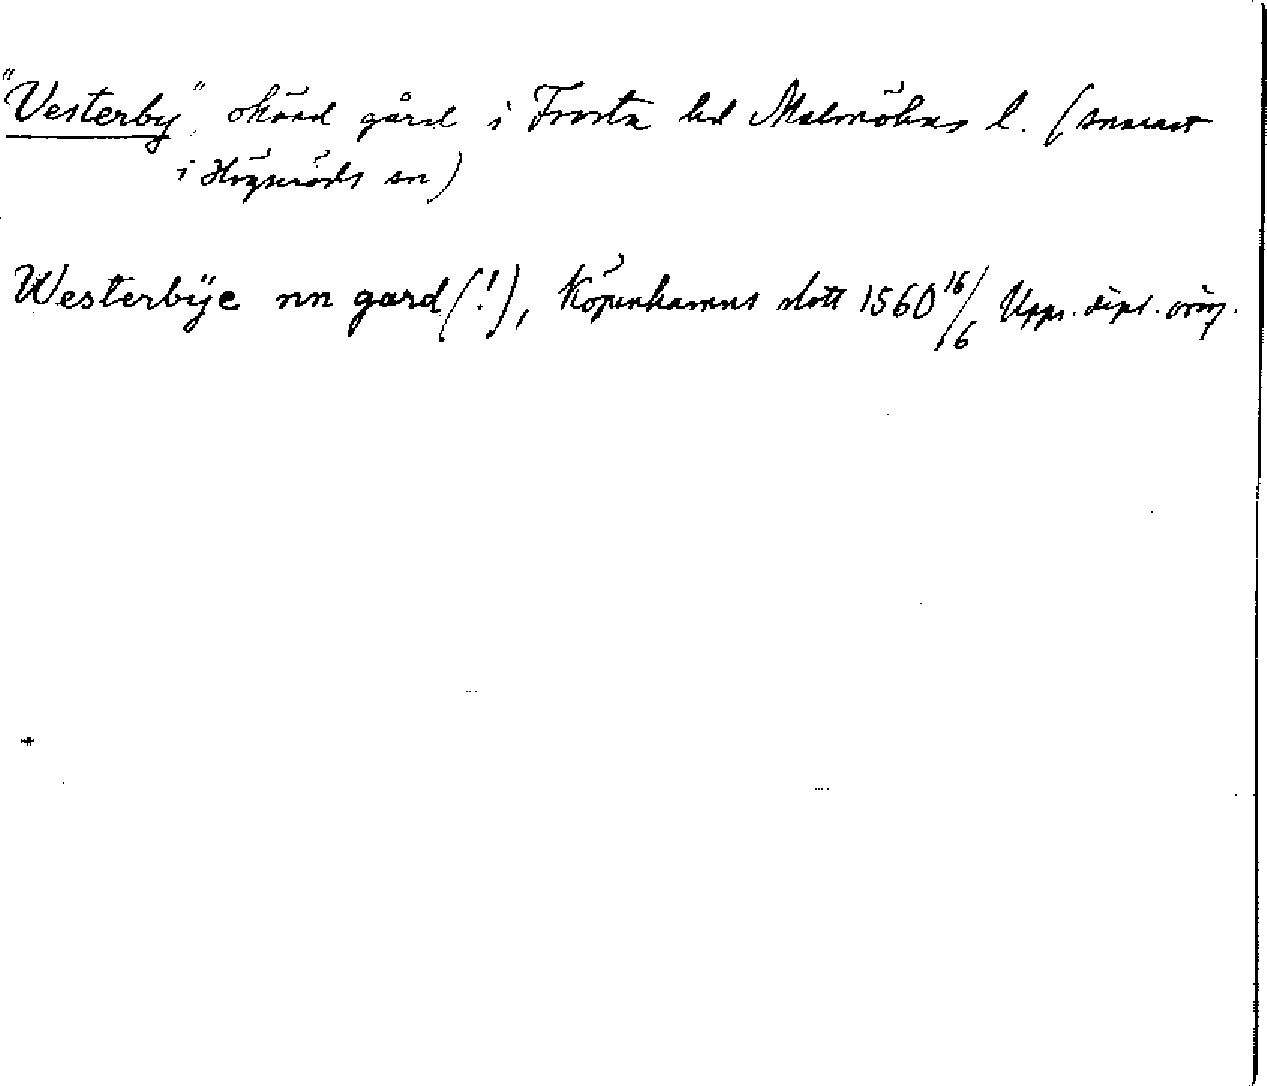 "Vesterby", okänd gård i Frosta hd Malmöhus l. (snarast
i Högseröds sn)
Westerbÿe nn gard (!), Köpenhamns slott 1560 16/6 Upps. dipl. orig.